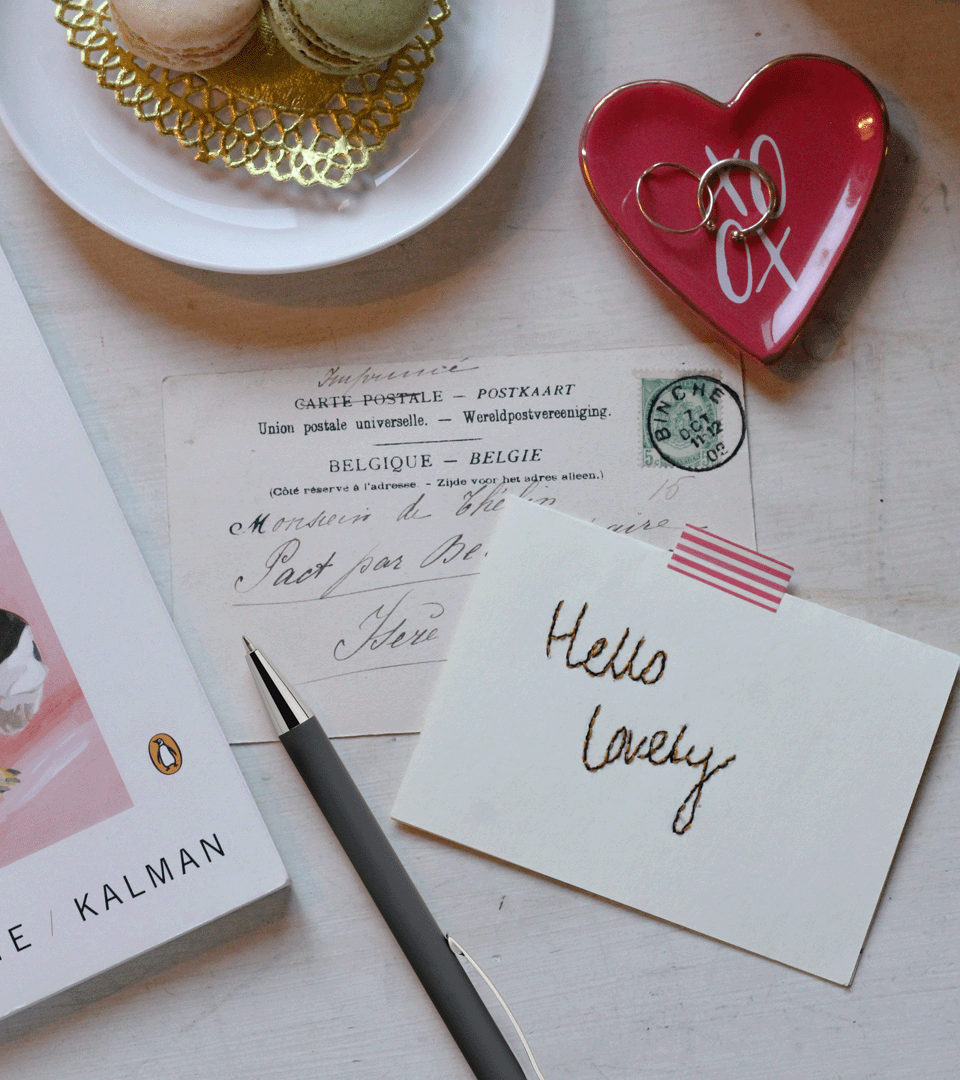 XO
OX
Imprimé
CARTE POSTALE — POSTKAART
Union postale universelle. — Wereldpostvereeniging.
BELGIQUE — BELGIE
(Côté réservé à l'adresse. - Zijde voor het adres alleen.)
BINCHE
7
OCT
11-12
5
Monsieur de
15
Pact par
aire
Hello
Lovely
E / KALMAN